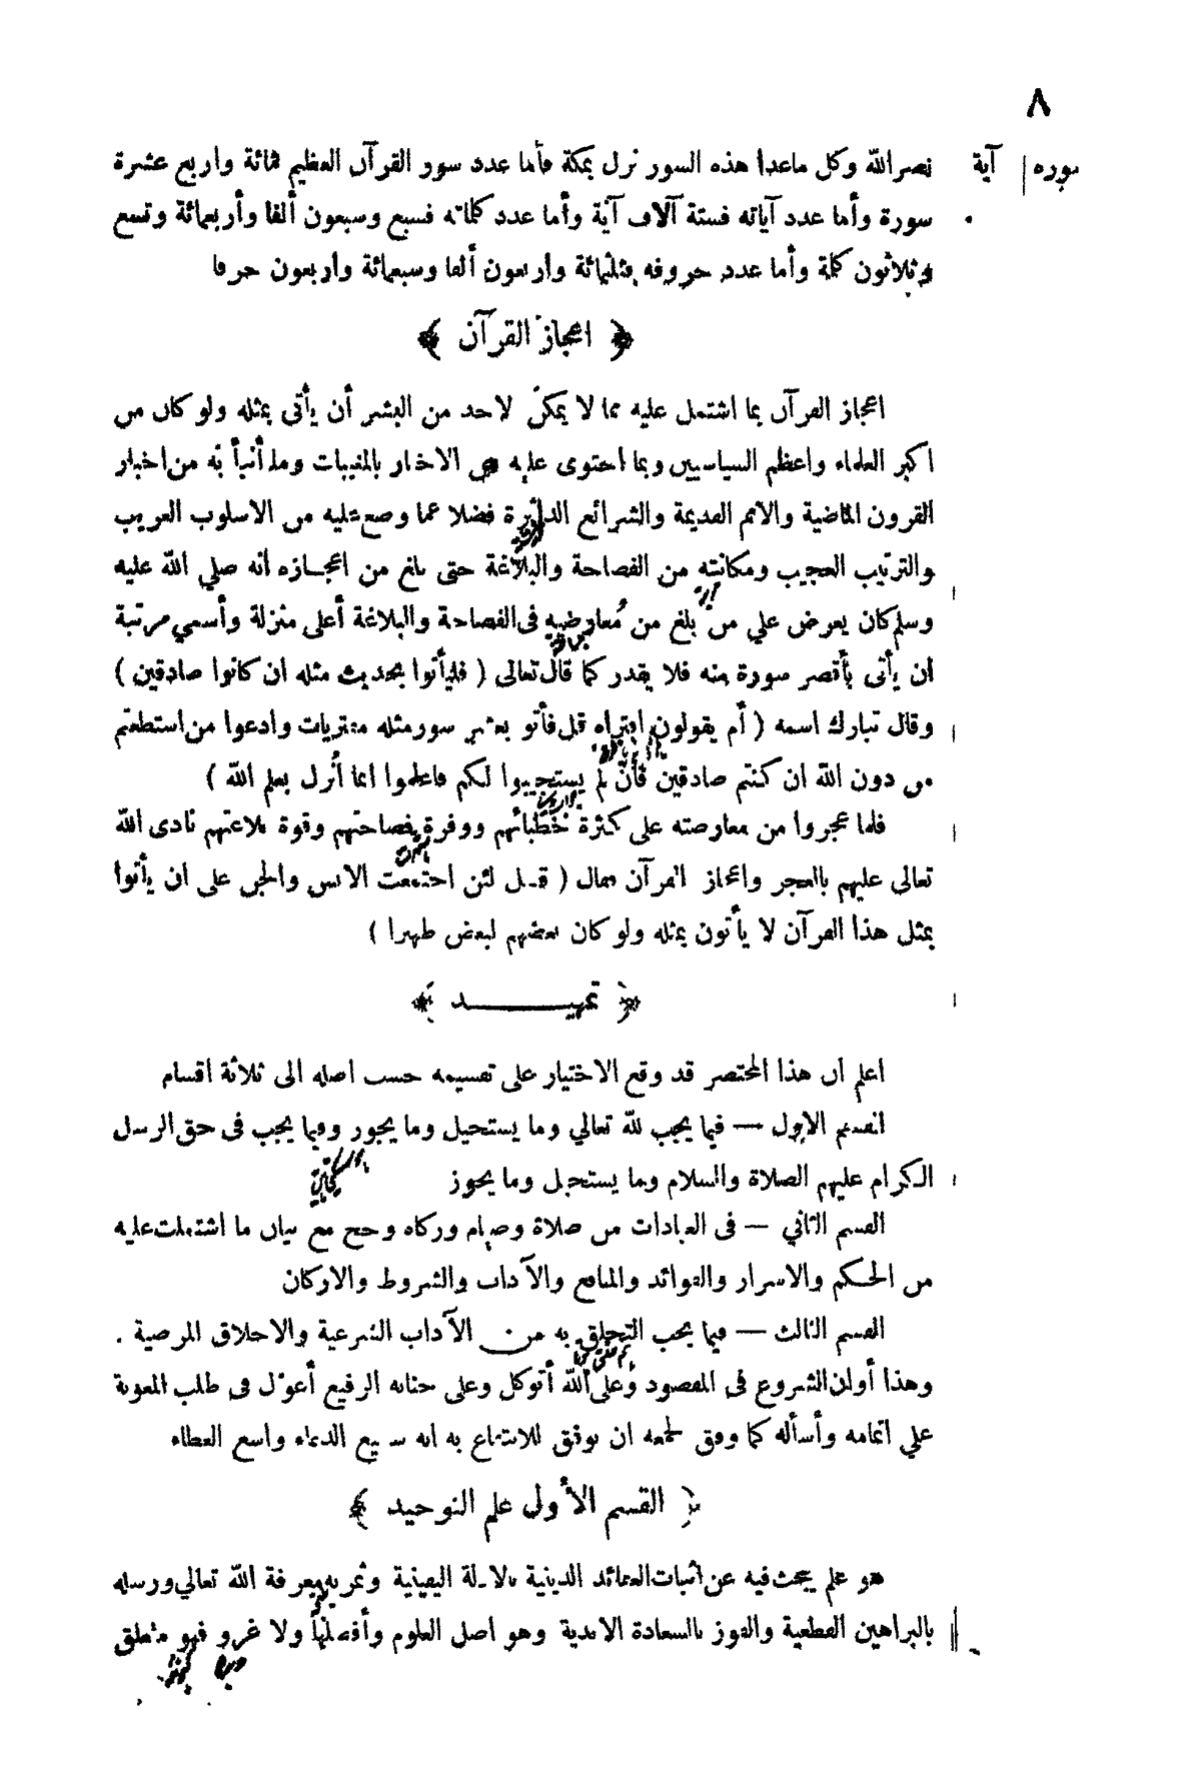 ٨
سوره آية
نصر الله وكل ماعدا هذه السور نزل بمكة فأما عدد سور القرآن العظيم فمائة واربع عشرة
سورة وأما عدد آياته فستة آلاف آية وأما عدد كلماته فسبع وسبعون ألفا وأربعمائة وتسع
وثلاثون كلمة وأما عدد حروفه فثلثمائة واربعون ألفا وسبعمائة واربعون حرفا
﴿ اعجاز القرآن ﴾
اعجاز القرآن بما اشتمل عليه مما لا يمكن لاحد من البشر أن يأتى بمثله ولو كان من
اكبر العلماء واعظم السياسيين وبما احتوى عليه من الاخبار بالمغيبات وما أنبأ به من اخبار
القرون الماضية والامم القديمة والشرائع الداثرة فضلا عما وضع عليه من الاسلوب الغريب
والترتيب العجيب ومكانته من الفصاحة والبلاغة حتى بلغ من اعجازه أنه صلي الله عليه
وسلم كان يعرض علي من بلغ من مُعارضيه فى الفصاحة والبلاغة أعلى منزلة وأسمي مرتبة
ان يأتى بأقصر سورة منه فلا يقدر كما قال تعالى ( فليأتوا بحديث مثله ان كانوا صادقين )
وقال تبارك اسمه ( أم يقولون افتراه قل فأتو بعشر سور مثله مفتريات وادعوا من استطعتم
من دون الله ان كنتم صادقين فأن لم يستجيبوا لكم فاعلموا انما أُنزل بعلم الله )
فلما عجزوا من معارضته على كثرة خطبائهم ووفرة فصاحتهم وقوة بلاغتهم نادى الله
تعالى عليهم بالعجز واعجاز القرآن فقال ( قل لئن اجتمعت الانس والجن على ان يأتوا
بمثل هذا القرآن لا يأتون بمثله ولو كان بعضهم لبعض ظهيرا )
﴿ تمهيد ﴾
اعلم ان هذا المختصر قد وقع الاختيار على تقسيمه حسب اصله الى ثلاثة اقسام
القسم الاول — فيما يجب لله تعالي وما يستحيل وما يجوز وفيما يجب فى حق الرسل
الكرام عليهم الصلاة والسلام وما يستحيل وما يجوز
القسم الثاني — فى العبادات من صلاة وصيام وزكاه وحج مع بيان ما اشتملت عليه
من الحكم والاسرار والفوائد والمنافع والآداب والشروط والاركان
القسم الثالث — فيما يجب التخلق به من الآداب الشرعية والاخلاق المرضية .
وهذا أوان الشروع فى المقصود وعلى الله أتوكل وعلى جنابه الرفيع أعوّل فى طلب المعونة
علي اتمامه وأسأله كما وفق لجمعه ان يوفق للانتفاع به انه سميع الدعاء واسع العطاء
﴿ القسم الأول علم التوحيد ﴾
هو علم يبحث فيه عن اثبات العقائد الدينية بالادلة اليقينية وثمرته معرفة الله تعالي ورسله
بالبراهين القطعية والفوز بالسعادة الابدية وهو اصل العلوم وأفضلها ولا غرو فهو متعلق